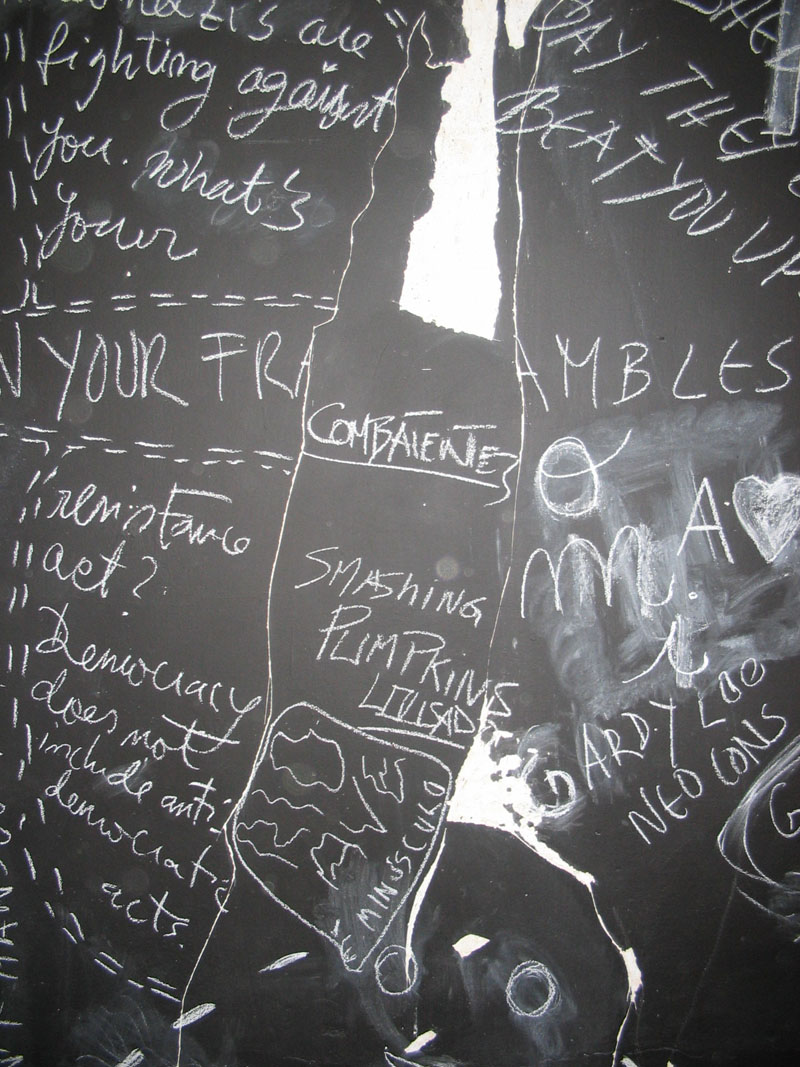 nazi's are
fighting against
you. what's
your
YOUR FRA AMBLES
resistance
act?
Democracy
does not
include anti-
democratic
acts.
SAY THEY
BEAT YOU UP
COMBATENTE
SMASHING
PUMPKINS
A
m.
DARDY LOO
NEO CONS
MINUSCULO
G